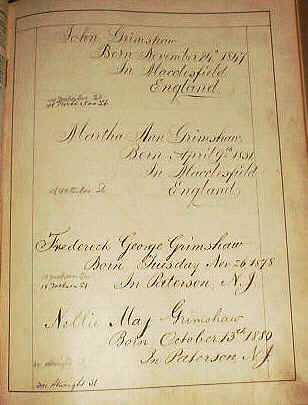 John Grimshaw
Born November 24th 1847
In Macclesfield
England
Martha Ann Grimshaw
Born April 9th
In Macclesfield
England
Frederick George Grimshaw
Born Tuesday Nov 26 1878
In Paterson, N.J
Nellie May Grimshaw
Born October 13th 1880
In Paterson, N.J.
St